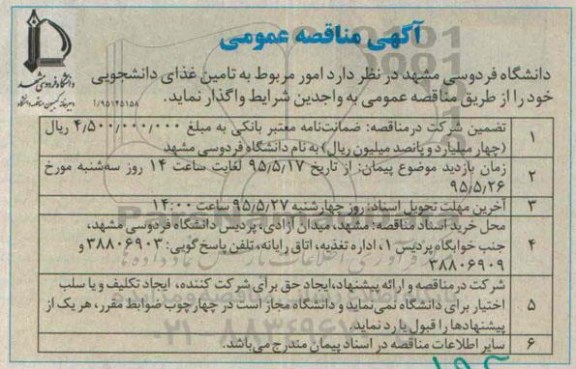 آگهی مناقصه عمومی
دانشگاه فردوسی مشهد
دبیرخانه کمیسیون مناقصات دانشگاه
۱/۹۵۱۴۵۱۵۸
دانشگاه فردوسی مشهد در نظر دارد امور مربوط به تامین غذای دانشجویی
خود را از طریق مناقصه عمومی به واجدین شرایط واگذار نماید.
۱ تضمین شرکت در مناقصه: ضمانت‌نامه معتبر بانکی به مبلغ ۴/۵۰۰/۰۰۰/۰۰۰ ریال
(چهار میلیارد و پانصد میلیون ریال) به نام دانشگاه فردوسی مشهد
۲ زمان بازدید موضوع پیمان: از تاریخ ۹۵/۵/۱۷ لغایت ساعت ۱۴ روز سه‌شنبه مورخ
۹۵/۵/۲۶
۳ آخرین مهلت تحویل اسناد: روز چهارشنبه ۹۵/۵/۲۷ ساعت ۱۴:۰۰
۴ محل خرید اسناد مناقصه: مشهد، میدان آزادی، پردیس دانشگاه فردوسی مشهد،
جنب خوابگاه پردیس ۱، اداره تغذیه، اتاق رایانه، تلفن پاسخ گویی: ۳۸۸۰۶۹۰۳ و
۳۸۸۰۶۹۰۹
۵ شرکت در مناقصه و ارائه پیشنهاد، ایجاد حق برای شرکت کننده، ایجاد تکلیف و یا سلب
اختیار برای دانشگاه نمی‌نماید و دانشگاه مجاز است در چهارچوب ضوابط مقرر، هر یک از
پیشنهادها را قبول یا رد نماید.
۶ سایر اطلاعات مناقصه در اسناد پیمان مندرج می‌باشد.